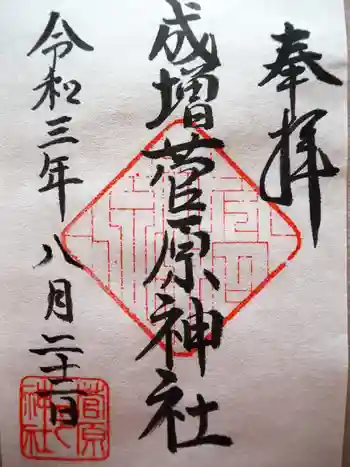 奉拝
成増菅原神社
令和三年八月二十一日
菅原
神社